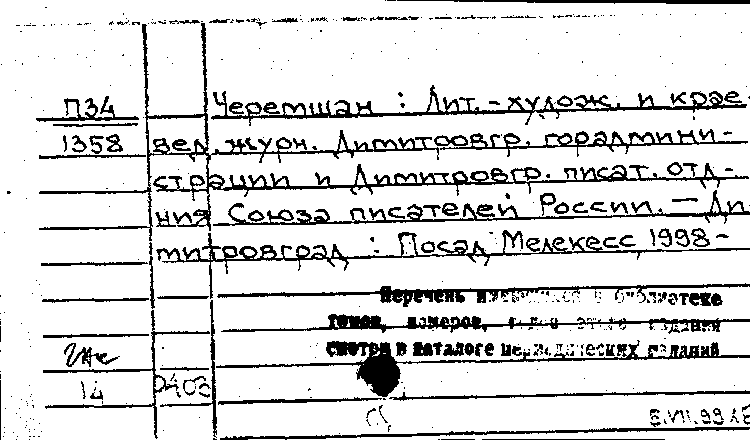 П34 Черемшан : Лит.-худож. и крае-
1358 вед. журн. Димитровгр. горадмини-
страции и Димитровгр. писат. отд-
ния Союза писателей России. — Ди
митровград : Посад Мелекесс, 1998-
Перечень имеющихся в библиотеке
томов, номеров, годов этого издания
смотри в каталоге периодических изданий
14 0403